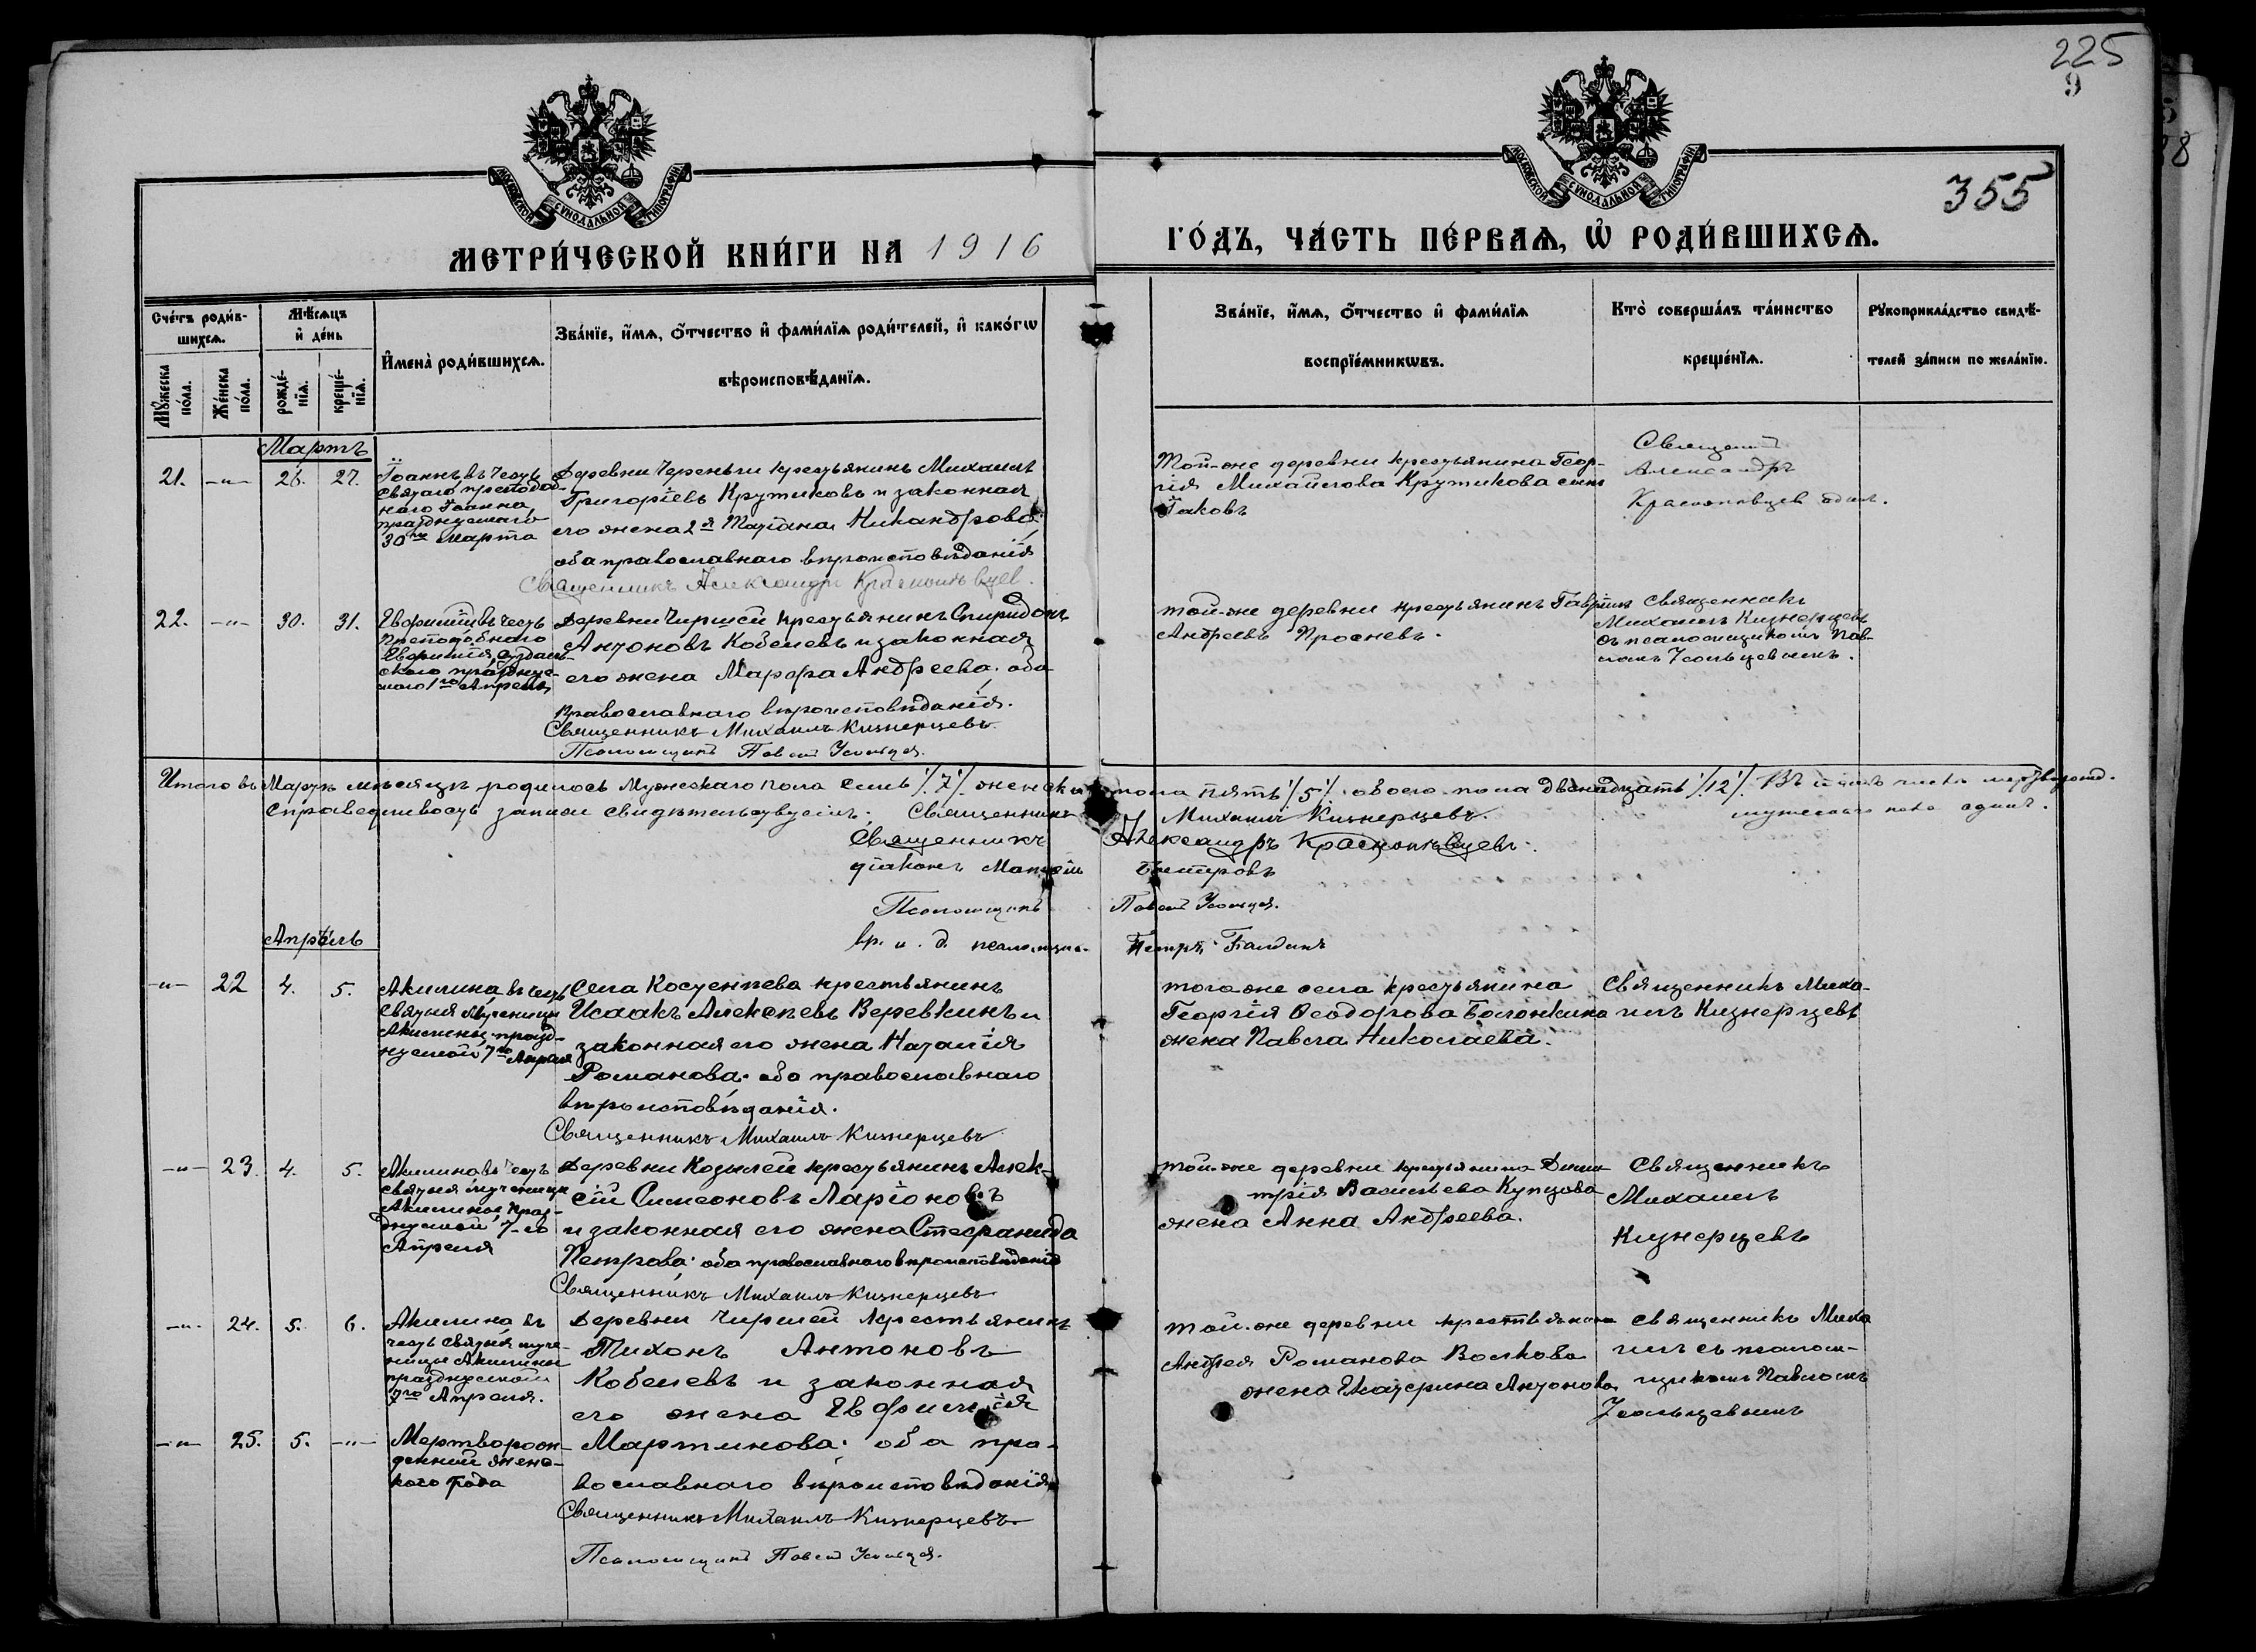 225
9
355
МОСКОВСКОЙ СѴНОДАЛЬНОЙ ТИПОГРАФІИ
МОСКОВСКОЙ СѴНОДАЛЬНОЙ ТИПОГРАФІИ
МЕТРИ́ЧЕСКОЙ КНИ́ГИ НА 1916
ГО́ДЪ, ЧА́СТЬ ПЕ́РВАѦ, Ѡ҆ РОДИ́ВШИХСѦ.
Сче́тъ роди́в-
шихсѧ.
Мꙋ́жеска
по́ла.
Же́нска
по́ла.
Мѣ́сѧцъ
и҆ де́нь
рожде́-
нїѧ.
креще́-
нїѧ.
И҆мена̀ роди́вшихсѧ.
Зва́нїе, и҆́мѧ, ѻ҆́тчество и҆ фами́лїѧ роди́телей, и҆ како́гѡ
вѣроисповѣ́данїѧ.
Зва́нїе, и҆́мѧ, ѻ҆́тчество и҆ фами́лїѧ
воспрїе́мникѡвъ.
Кто̀ соверша́лъ та́инство
креще́нїѧ.
Рꙋкоприкла́дство свидѣ́-
телей за́писи по жела́нїю.
Мартъ
21. -"- 26. 27.
Іоаннъ въ честь
святаго преподоб-
наго Іоанна,
празднуемаго
30го Марта
Деревни Череньги крестьянинъ Михаилъ
Григоріевъ Крутиковъ и законная
его жена 2я Татіана Никандрова:
оба православнаго вѣроисповѣданія
Священникъ Александръ Краснопѣвцев.
Той-же деревни крестьянина Геор-
гія Михайлова Крутикова сынъ
Іаковъ
Священникъ
Александръ
Краснопѣвцев один.
22. -"- 30. 31.
Евфимій въ честь
Преподобнаго
Евфимія, Суздаль-
скаго празднуе-
маго 1го Апреля,
Деревни Чиршей крестьянинъ Спиридонъ
Антоновъ Кобелевъ и законная
его жена Марфа Андреева: оба
православнаго вѣроисповѣданія.
Священникъ Михаилъ Кизнерцевъ
Псаломщикъ Павелъ
той-же деревни крестьянинъ Гавріилъ
Андреевъ Просневъ.
Священникъ
Михаилъ Кизнерцевъ
съ псаломщикомъ Пав-
ломъ Усольцевымъ.
Итого въ Мартѣ мѣсяцѣ родилось мужескаго пола семь /7/ женска пола пять /5/ обоего пола двѣнадцать /12/. Въ томъ числѣ мертворожд.
мужескаго пола одинъ.
Справедливость записи свидѣтельствуемъ: Священникъ Михаилъ Кизнерцевъ.
Священникъ Александръ Краснопѣвцевъ.
діаконъ
Псаломщикъ Павелъ
вр. и. д. псаломщ. Петръ
Апрѣль
-"- 22 4. 5.
Акилина, въ честь
святыя мученицы
Акилины, празд-
нуемой 7го Апреля
Села Костенѣева крестьянинъ
Исаакъ Алексѣевъ Веревкинъ и
законная его жена Наталія
Романова: оба православнаго
вѣроисповѣданія.
Священникъ Михаилъ Кизнерцевъ
того же села крестьянина
Георгія Ѳеодорова Болонкина
жена Павла Николаева.
Священникъ Миха-
илъ Кизнерцевъ
-"- 23. 4. 5.
Акилина въ честь
святыя мученицы
Акилины, праз-
днуемой 7-го
Апреля
Деревни Козылей крестьянинъ Алек-
сій Симеоновъ Ларіоновъ
и законная его жена Стефанида
Петрова: оба православнаго вѣроисповѣданія
Священникъ Михаилъ Кизнерцевъ
той-же деревни крестьянина Дими-
трія Васильева Купцова
жена Анна Андреева.
Священникъ
Михаилъ
Кизнерцевъ
-"- 24. 5. 6.
Акилина въ
честь святыя муче-
ницы Акилины
празднуемой
7го Апреля.
Деревни Чиршей крестьянинъ
Тихонъ Антоновъ
Кобелевъ и законная
его жена Евфимія
той-же деревни крестьянина
Андрея Романова Волкова
жена Екатерина Антонова
Священникъ Миха
илъ съ псалом-
щикомъ Павломъ
Усольцевымъ
-"- 25. 5. -"-
Мертворож-
денный женс-
каго рода
Мартинова: оба пра-
вославнаго вѣроисповѣданія
Священникъ Михаилъ Кизнерцевъ
Псаломщикъ Павелъ